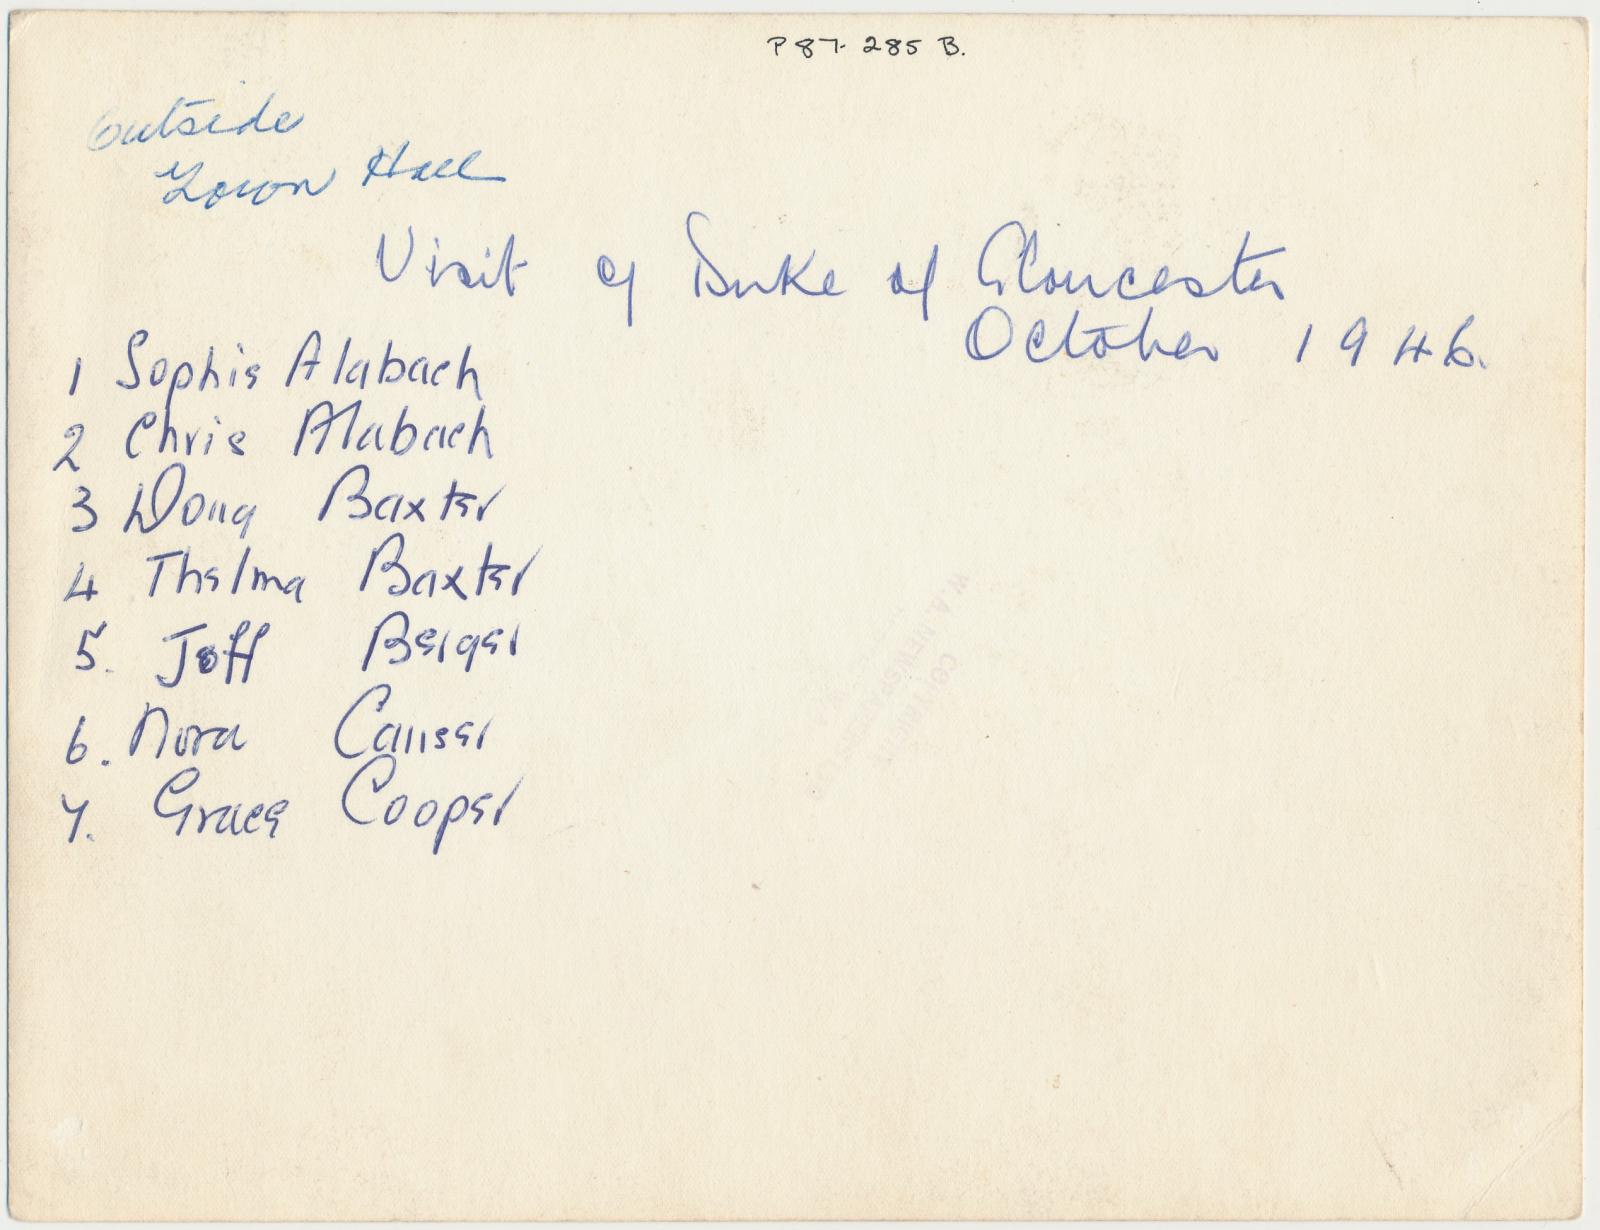 P87-285 B.
Outside
Town Hall
Visit of Duke of Gloucester
October 1946.
1 Sophie Alabach
2 Chris Alabach
3 Doug Baxter
4 Thelma Baxter
5. Jeff Berger
6. Nora Causer
7. Grace Cooper
W.A. NEWSPAPERS LTD
COPYRIGHT